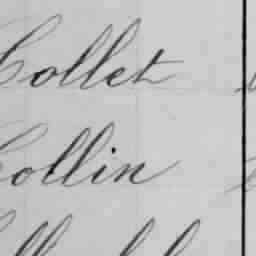 Collet
Collin